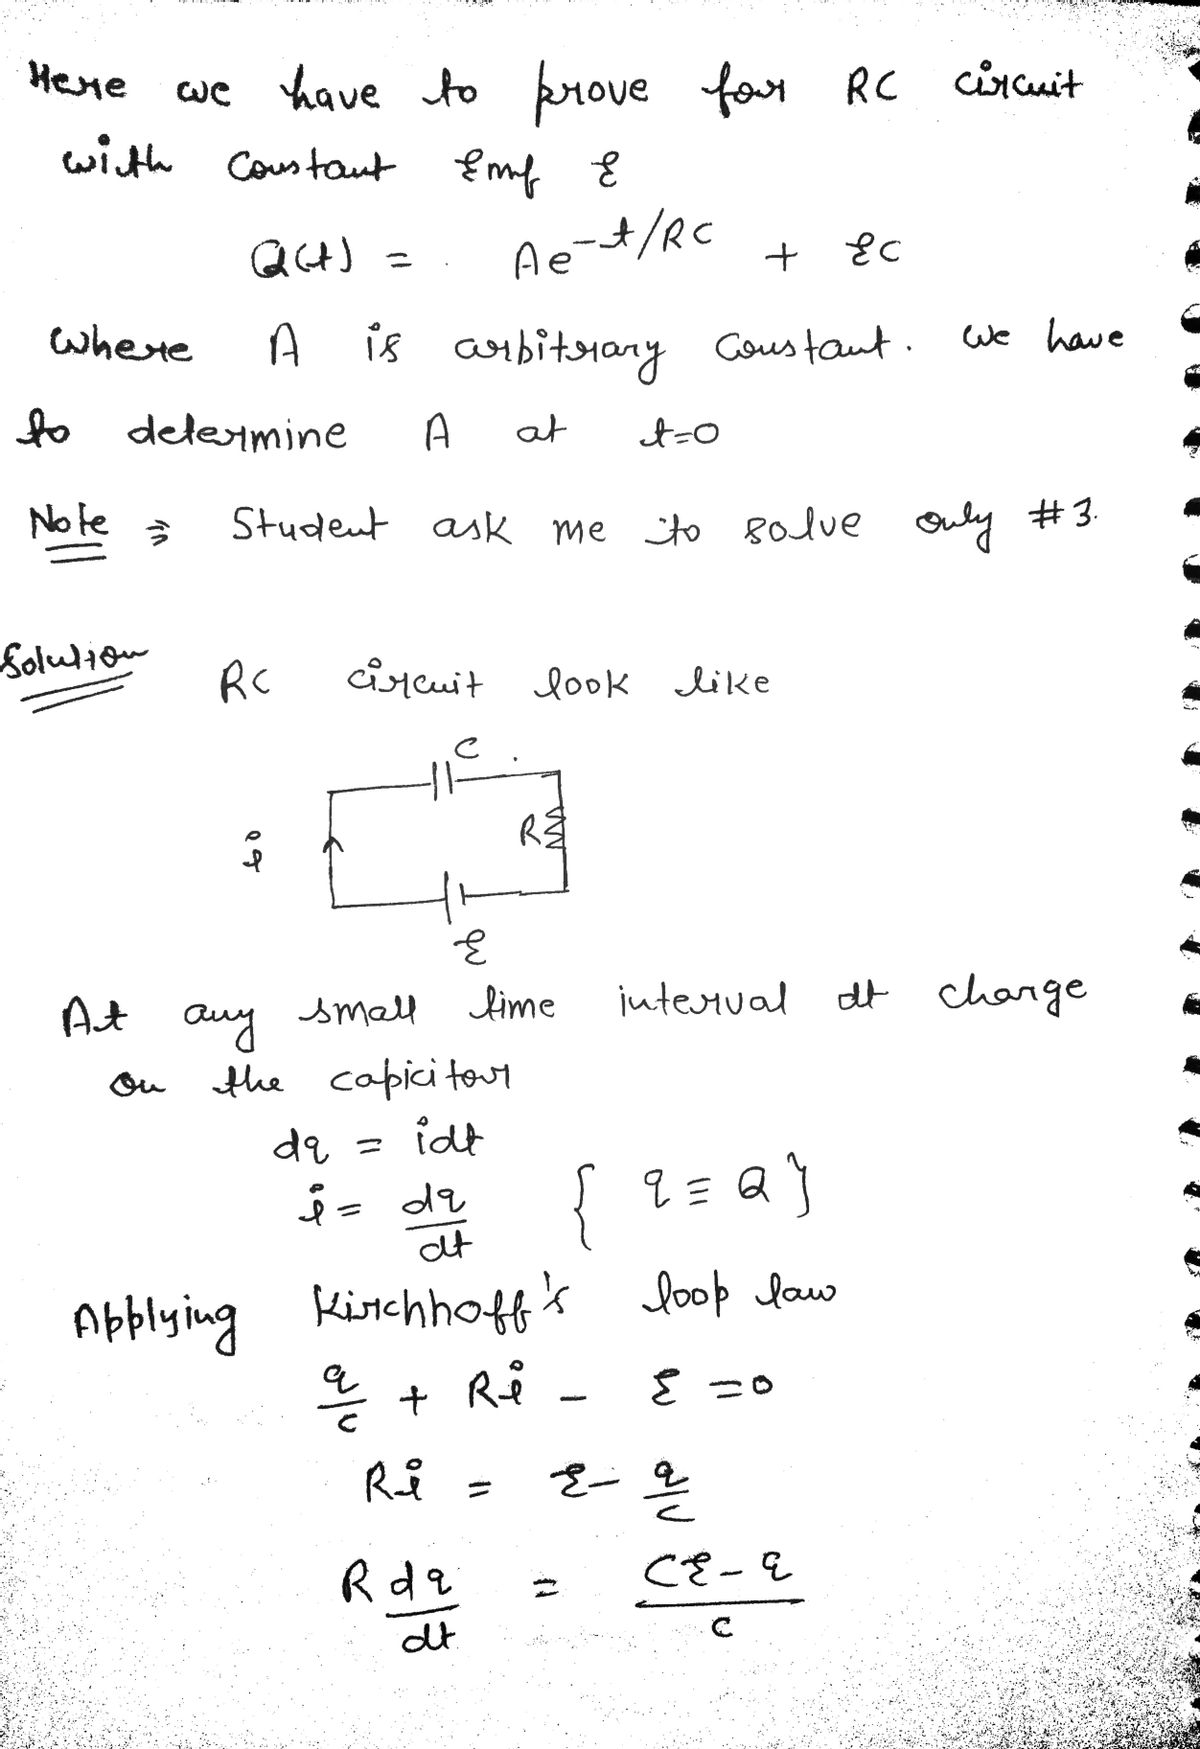 Here we have to prove for RC circuit
with Constant Emf ℰ
Q(t) = Ae^{-t/RC} + ℰC
where A is arbitrary constant. we have
to determine A at t=0
Note ⇒ Student ask me to solve only #3.
Solution RC circuit look like
C
R
i
ℰ
At any small time interval dt charge
on the capicitor
dq = idt
i = dq/dt { q ≡ Q }
Applying Kirchhoff's loop law
q/c + Ri - ℰ = 0
Ri = ℰ - q/c
R dq/dt = (Cℰ - q)/c